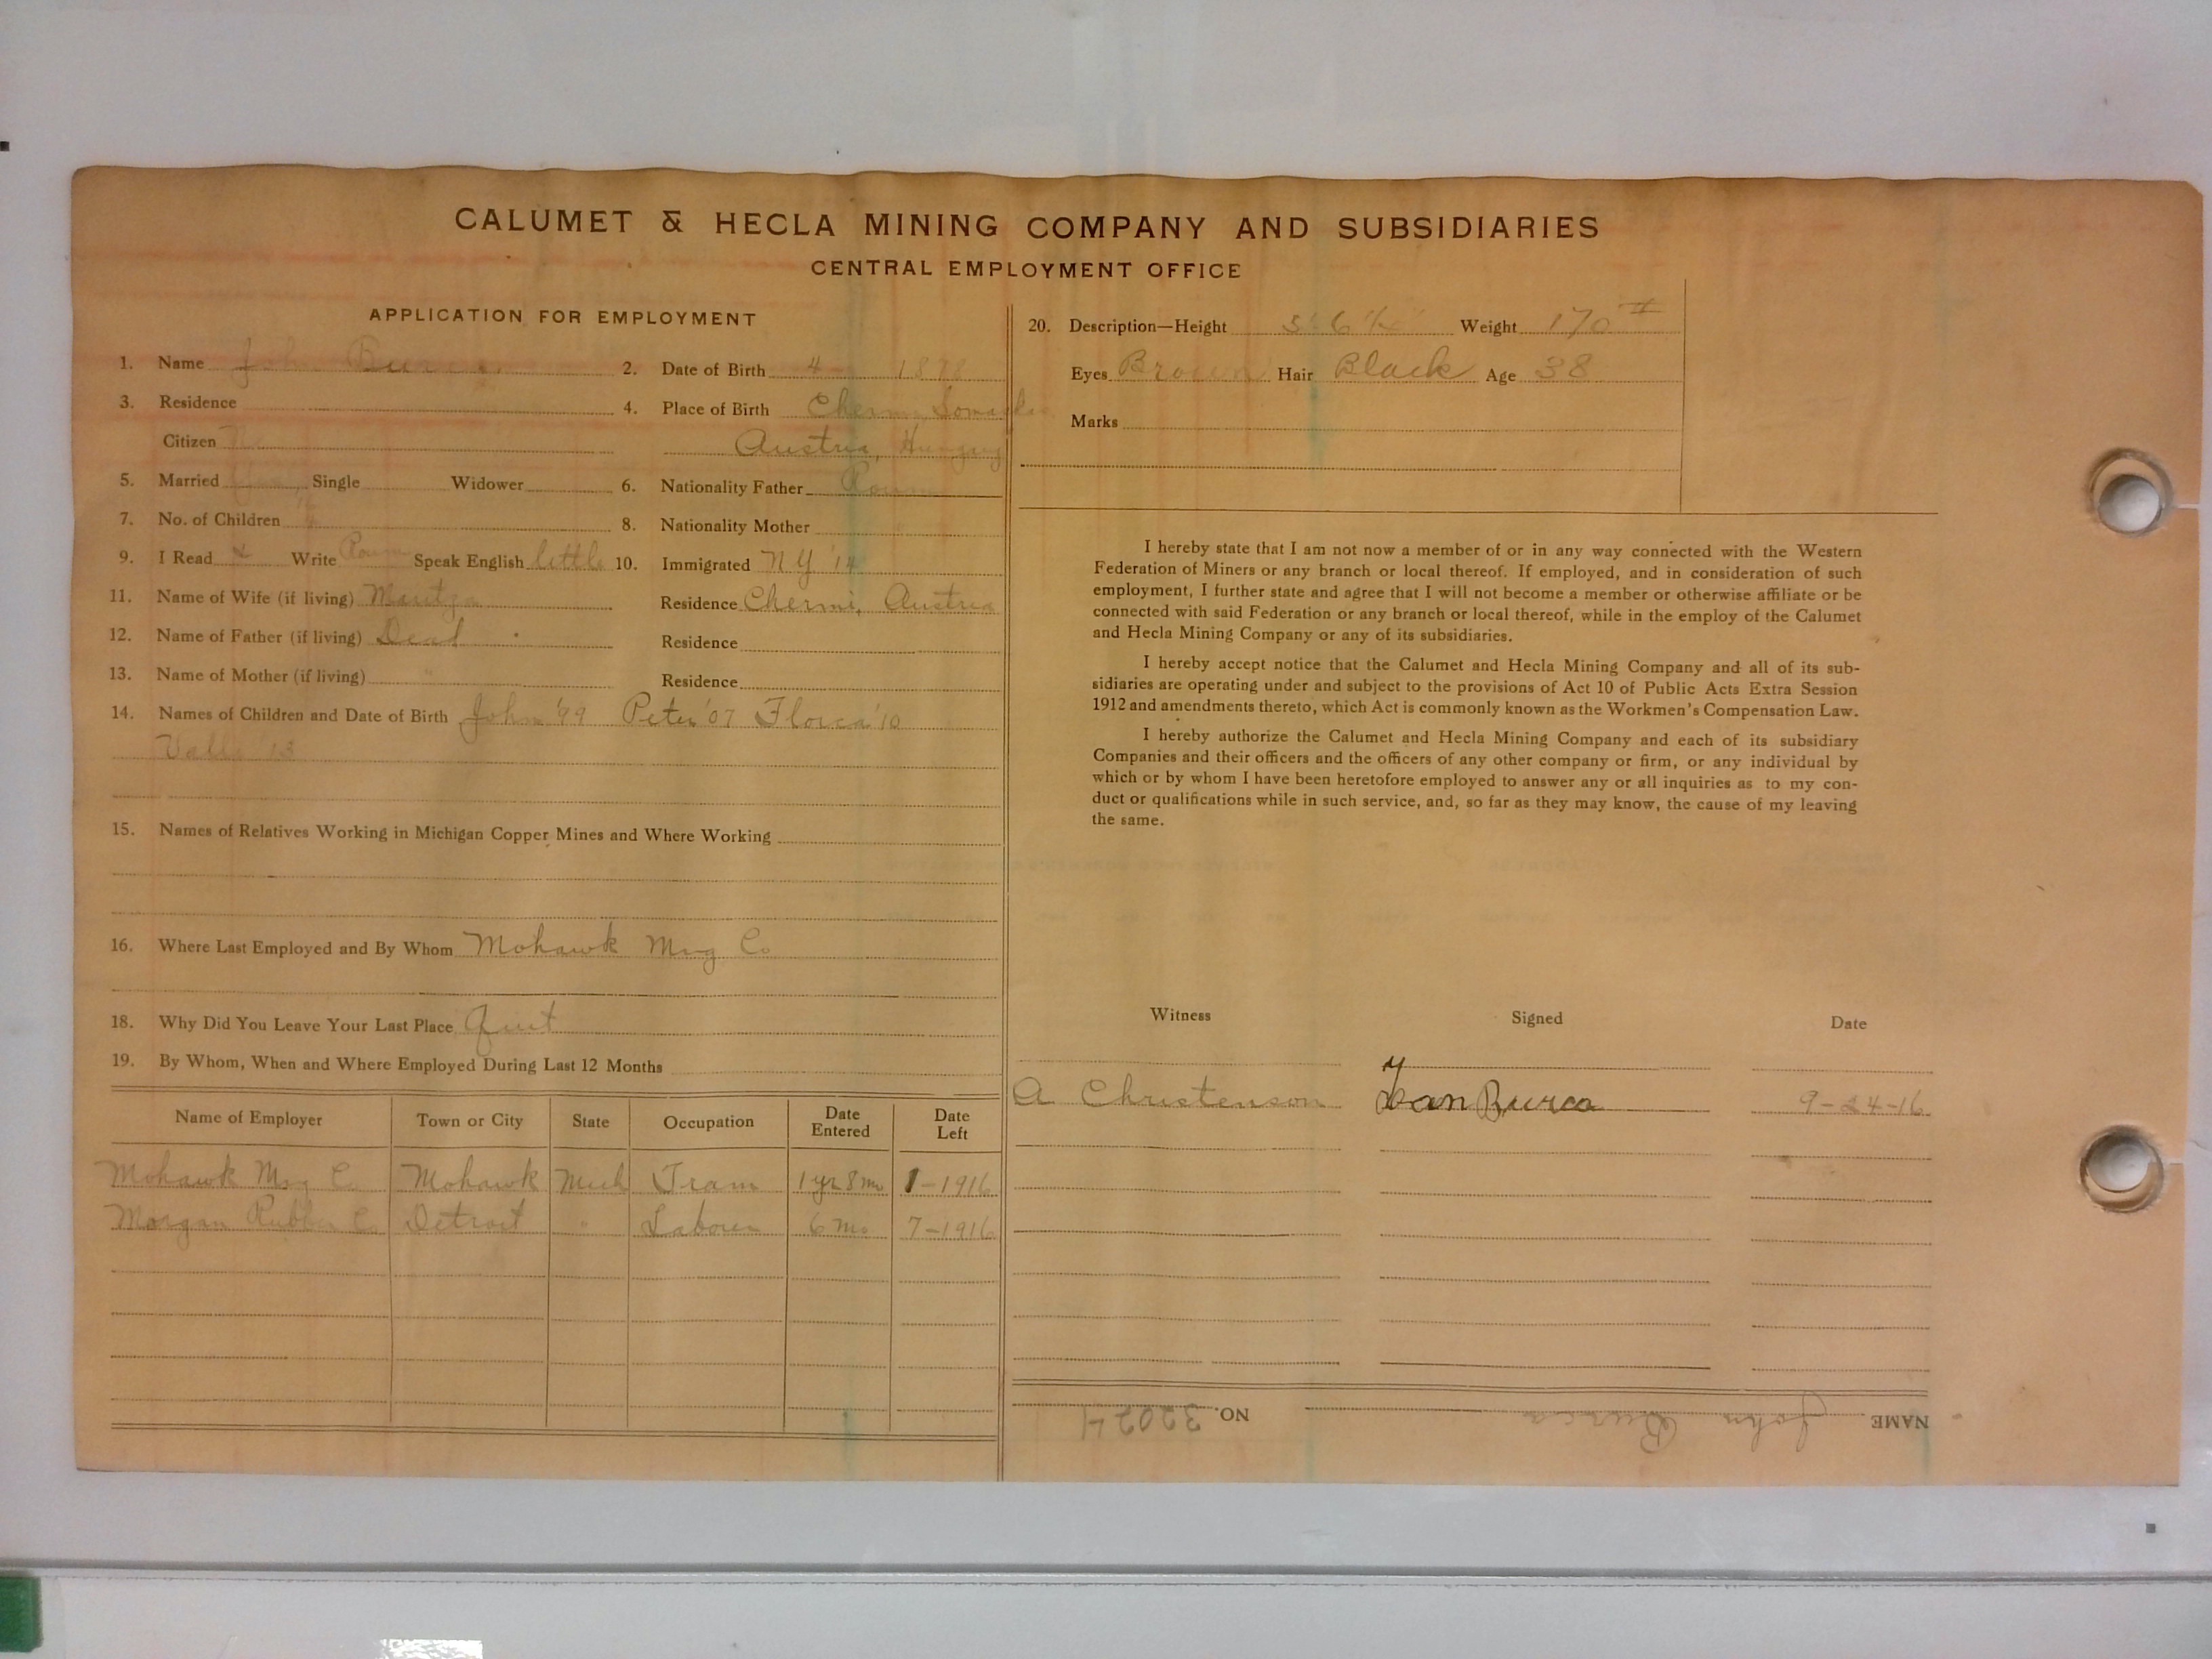 CALUMET & HECLA MINING COMPANY AND SUBSIDIARIES
CENTRAL EMPLOYMENT OFFICE
APPLICATION FOR EMPLOYMENT
1. Name John Burca 2. Date of Birth 4 1878
3. Residence 4. Place of Birth
Citizen Austria, Hungary
5. Married Single Widower 6. Nationality Father Roum
7. No. of Children 8. Nationality Mother
9. I Read & Write Roum Speak English little 10. Immigrated N Y '14
11. Name of Wife (if living) Residence Chermi, Austria
12. Name of Father (if living) Dead Residence
13. Name of Mother (if living) " Residence
14. Names of Children and Date of Birth John '99 Peter '07 Florea '10
'13
15. Names of Relatives Working in Michigan Copper Mines and Where Working
16. Where Last Employed and By Whom Mohawk Mng Co
18. Why Did You Leave Your Last Place Quit
19. By Whom, When and Where Employed During Last 12 Months
Name of Employer Town or City State Occupation Date Entered Date Left
Mohawk Mng C. Mohawk Mich Tram 1 yr 8 mo 1-1916
Morgan Rubber C. Detroit " Laborer 6 mo. 7-1916
20. Description—Height 5' 6½" Weight 170 #
Eyes Brown Hair Black Age 38
Marks
I hereby state that I am not now a member of or in any way connected with the Western
Federation of Miners or any branch or local thereof. If employed, and in consideration of such
employment, I further state and agree that I will not become a member or otherwise affiliate or be
connected with said Federation or any branch or local thereof, while in the employ of the Calumet
and Hecla Mining Company or any of its subsidiaries.
I hereby accept notice that the Calumet and Hecla Mining Company and all of its sub-
sidiaries are operating under and subject to the provisions of Act 10 of Public Acts Extra Session
1912 and amendments thereto, which Act is commonly known as the Workmen's Compensation Law.
I hereby authorize the Calumet and Hecla Mining Company and each of its subsidiary
Companies and their officers and the officers of any other company or firm, or any individual by
which or by whom I have been heretofore employed to answer any or all inquiries as to my con-
duct or qualifications while in such service, and, so far as they may know, the cause of my leaving
the same.
Witness Signed Date
A Christenson Ioan Burca 9-24-16
NAME John Burca NO. 32024